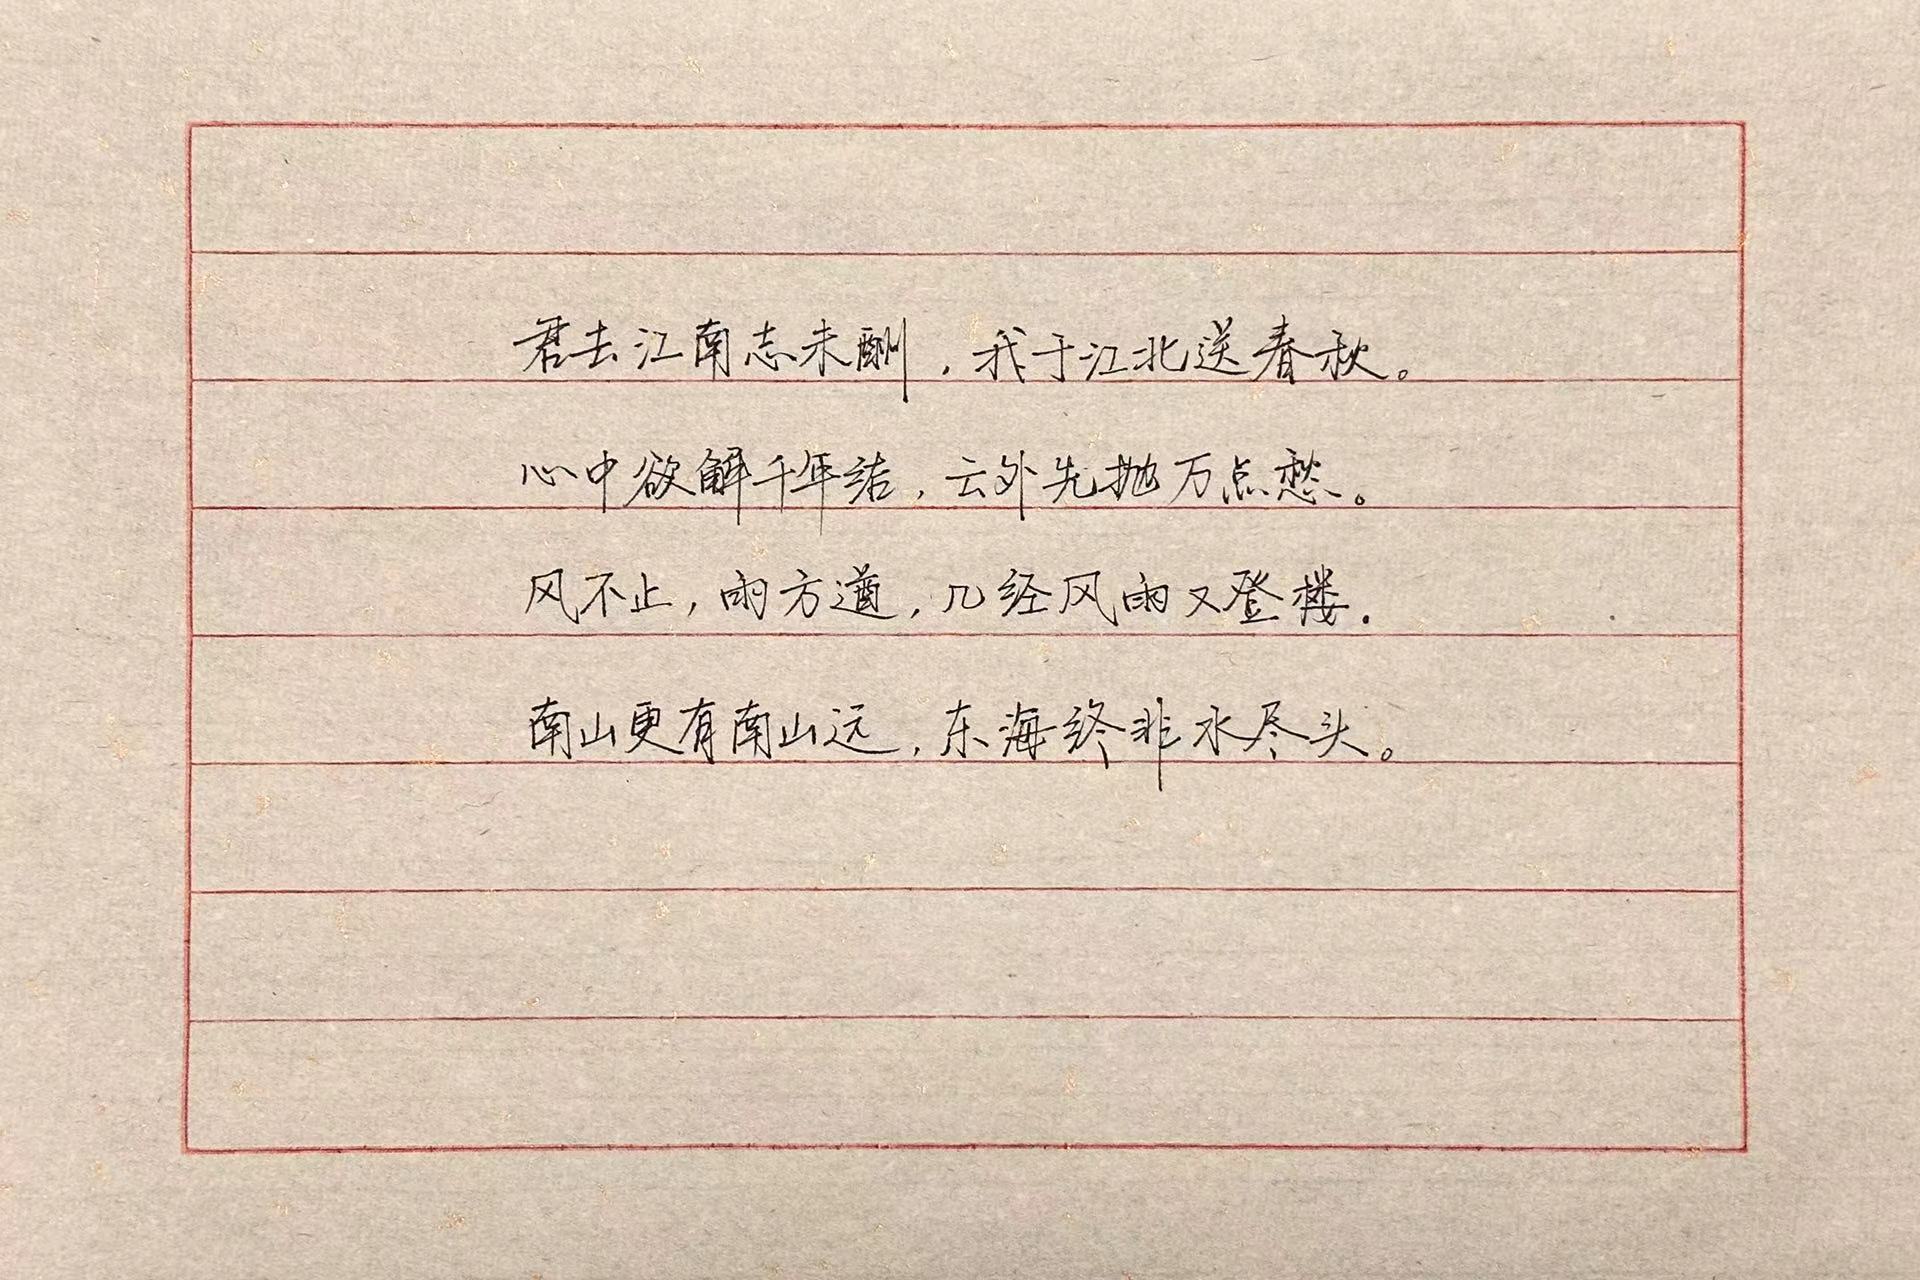 君去江南志未酬，我于江北送春秋。
心中欲解千年结，云外先抛万点愁。
风不止，雨方遒，几经风雨又登楼.
南山更有南山远，东海终非水尽头。